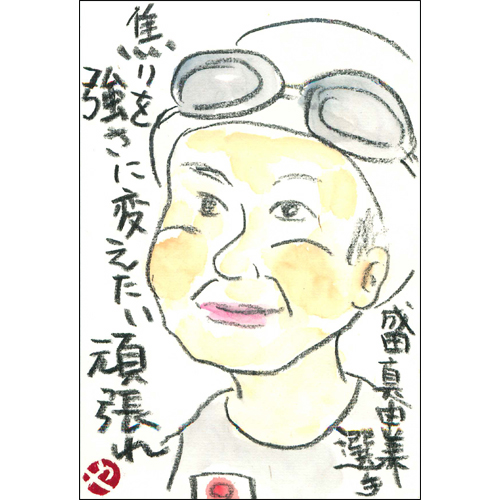 焦りを
強さに変えたい
頑張れ
成田真由美
選手
や